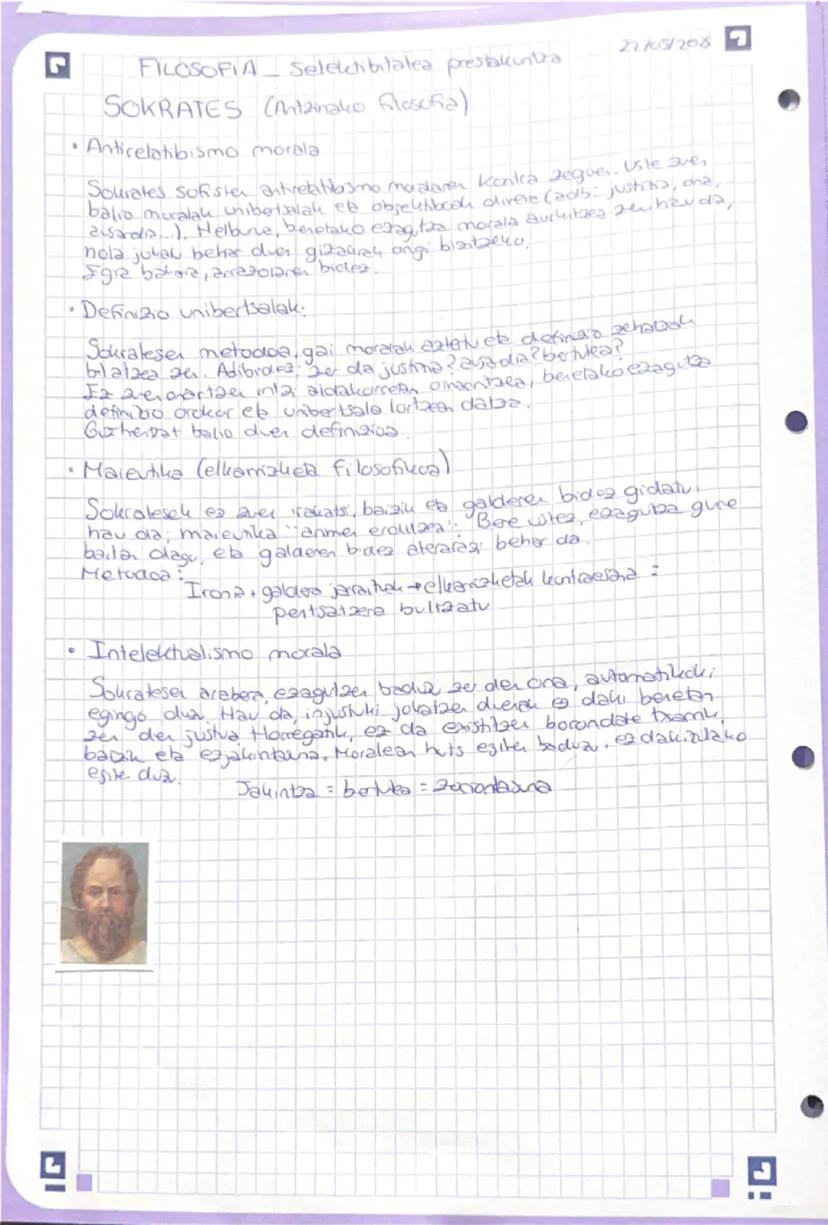 22/05/2025
FILOSOFIA _ Selektibitatea prestakuntza
SOKRATES (Antzinako filosofia)
• Antirelatibismo morala
Sokrates sofisten antirelatibismo moralaren kontra zegoen. Uste zuen
balio moralak unibertsalak eta objektiboak direla (adb: justizia, ona,
ausardia...). Helburua, benetako ezagutza morala aurkitzea zen, hau da,
nola jokatu behar duen gizakiak ongi bizitzeko.
Egia bakarra, arrazoiaren bidez.
• Definizio unibertsalak:
Sokratesen metodoa, gai moralak aztertu eta definizio zehatzak
bilatzea zen. Adibidez: zer da justizia? ausardia? bertutea?
Ez zuen onartzen iritzi aldakorretan oinarritzea, benetako ezagutza
definizio orokor eta unibertsala lortzean datza.
Guztientzat balio duen definizioa.
• Maieutika (elkarrizketa filosofikoa)
Sokratesek ez zuen irakatsi, baizik eta galderen bidez gidatu,
hau da, maieutika "arimen erditzea". Bere ustez, ezagutza gure
baitan dago, eta galderen bidez atera behar da.
Metodoa:
Ironia + galdera jarraituak → elkarrizketak kontraesana =
pentsatzera bultzatu
• Intelektualismo morala
Sokratesen arabera, ezagutzen baduzu zer den ona, automatikoki
egingo duzu. Hau da, injustuki jokatzen duenak ez daki benetan
zer den justua. Horregatik, ez da existitzen borondate txarrik,
baizik eta ezjakintasuna. Moralean huts egiten baduzu, ez dakizulako
egiten duzu.
Jakintza = bertutea = zoriontasuna